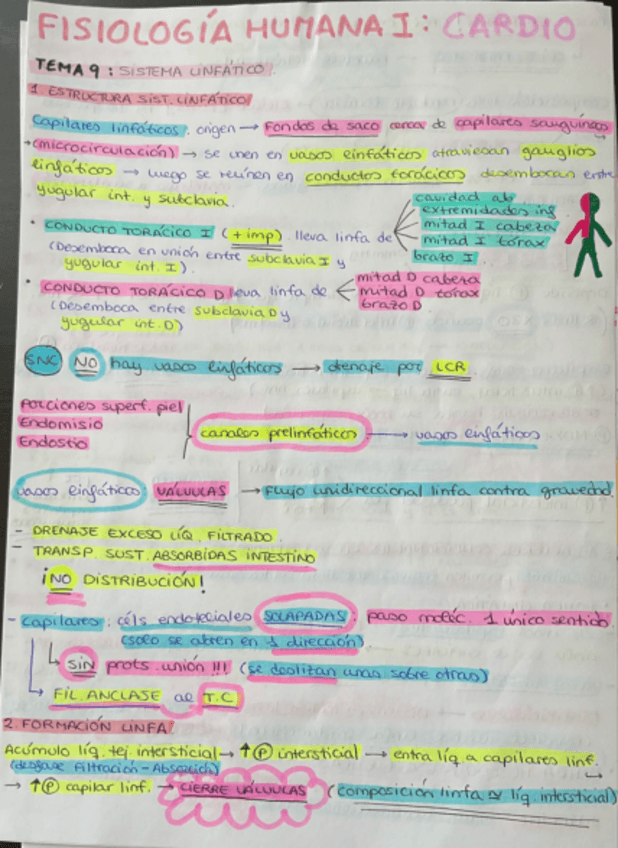 FISIOLOGÍA HUMANA I: CARDIO
TEMA 9: SISTEMA LINFÁTICO.
1. ESTRUCTURA SIST. LINFÁTICO
Capilares linfáticos: origen → Fondos de saco cerca de capilares sanguíneos
(microcirculación) → se unen en vasos linfáticos atraviesan ganglios
linfáticos → luego se reúnen en conductos torácicos desembocan entre
yugular int. y subclavia.
· CONDUCTO TORÁCICO I (+imp). lleva linfa de
cavidad ab
extremidades inf
mitad I cabeza
mitad I tórax
brazo I.
(Desemboca en unión entre subclavia I y
yugular int. I).
· CONDUCTO TORÁCICO D lleva linfa de
mitad D cabeza
mitad D tórax
brazo D
(Desemboca entre subclavia D y
yugular int. D)
SNC NO hay vasos linfáticos → drenaje por LCR
Porciones superf. piel
Endomisio
Endostio
canales prelinfáticos → vasos linfáticos
vasos linfáticos: VÁLVULAS → Flujo unidireccional linfa contra gravedad.
- DRENAJE EXCESO LÍQ. FILTRADO
- TRANSP. SUST. ABSORBIDAS INTESTINO
¡NO DISTRIBUCIÓN!
- Capilares: céls endoteliales SOLAPADAS: paso moléc. 1 único sentido.
(solo se abren en 1 dirección)
↳ SIN prots. unión !!! (se deslizan unas sobre otras)
↳ FIL. ANCLAJE al T.C
2. FORMACIÓN LINFA
Acúmulo líq. tej. intersticial → ↑ P intersticial → entra líq. a capilares linf.
(desfase Filtración-Absorción)
→ ↑ P capilar linf. → CIERRE VÁLVULAS (composición linfa ≃ líq. intersticial)